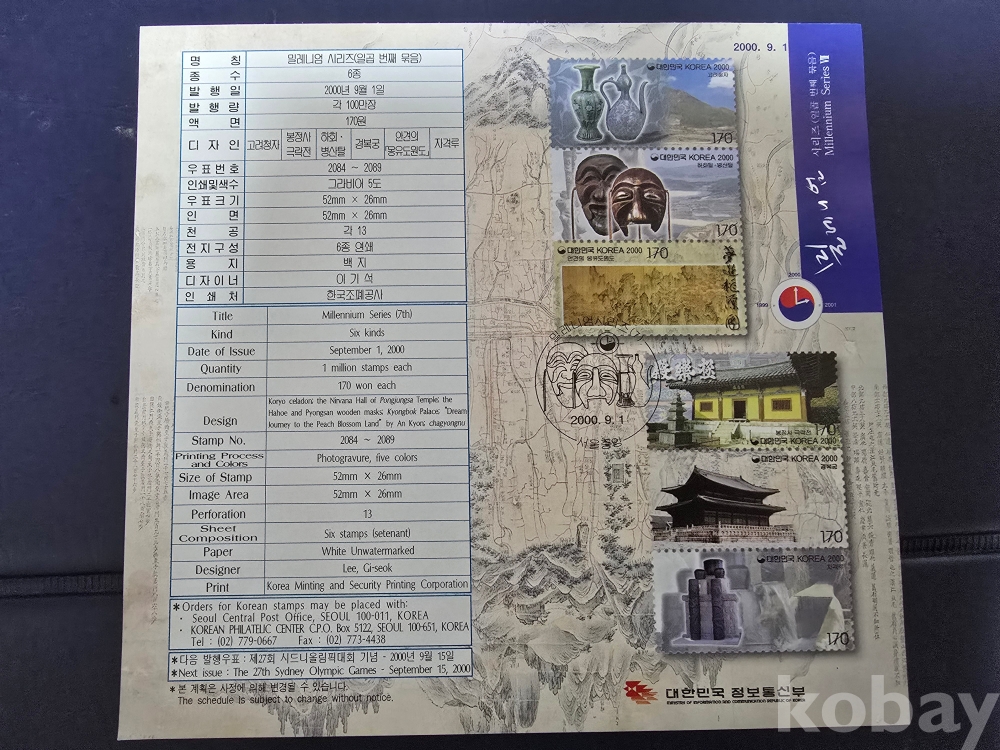 명 칭 밀레니엄 시리즈(일곱 번째 묶음)
종 수 6종
발 행 일 2000년 9월 1일
발 행 량 각 100만장
액 면 170원
디 자 인 고려청자 봉정사 극락전 하회·병산탈 경복궁 안견의 「몽유도원도」 자격루
우 표 번 호 2084 ~ 2089
인쇄및색수 그라비어 5도
우 표 크 기 52mm × 26mm
인 면 52mm × 26mm
천 공 각 13
전 지 구 성 6종 연쇄
용 지 백 지
디 자 이 너 이 기 석
인 쇄 처 한국조폐공사
Title Millennium Series (7th)
Kind Six kinds
Date of Issue September 1, 2000
Quantity 1 million stamps each
Denomination 170 won each
Design Koryo celadon; the Nirvana Hall of Pongjungsa Temple; the
Hahoe and Pyongsan wooden masks; Kyongbok Palace; "Dream
Journey to the Peach Blossom Land" by An Kyon; chagyongnu
Stamp No. 2084 ~ 2089
Printing Process
and Colors Photogravure, five colors
Size of Stamp 52mm × 26mm
Image Area 52mm × 26mm
Perforation 13
Sheet
Composition Six stamps (setenant)
Paper White Unwatermarked
Designer Lee, Gi-seok
Print Korea Minting and Security Printing Corporation
*Orders for Korean stamps may be placed with:
· Seoul Central Post Office, SEOUL 100-011, KOREA
· KOREAN PHILATELIC CENTER C.P.O. Box 5122, SEOUL 100-651, KOREA
Tel : (02) 779-0667 Fax : (02) 773-4438
*다음 발행우표 : 제27회 시드니올림픽대회 기념 - 2000년 9월 15일
*Next issue : The 27th Sydney Olympic Games - September 15, 2000
*본 계획은 사정에 의해 변경될 수 있습니다.
The schedule is subject to change without notice.
2000. 9. 1
대한민국 KOREA 2000
고려청자
170
대한민국 KOREA 2000
하회탈·병산탈
170
대한민국 KOREA 2000
안견의 몽유도원도
170
夢遊桃源圖
2000. 9. 1
서울중앙
極樂殿
170
봉정사 극락전
대한민국 KOREA 2000
대한민국 KOREA 2000
경복궁
170
대한민국 KOREA 2000
자격루
170
밀레니엄
시리즈(일곱 번째 묶음)
Millennium Series Ⅶ
2000
1999
2001
대한민국 정보통신부
MINISTRY OF INFORMATION AND COMMUNICATION REPUBLIC OF KOREA
kobay